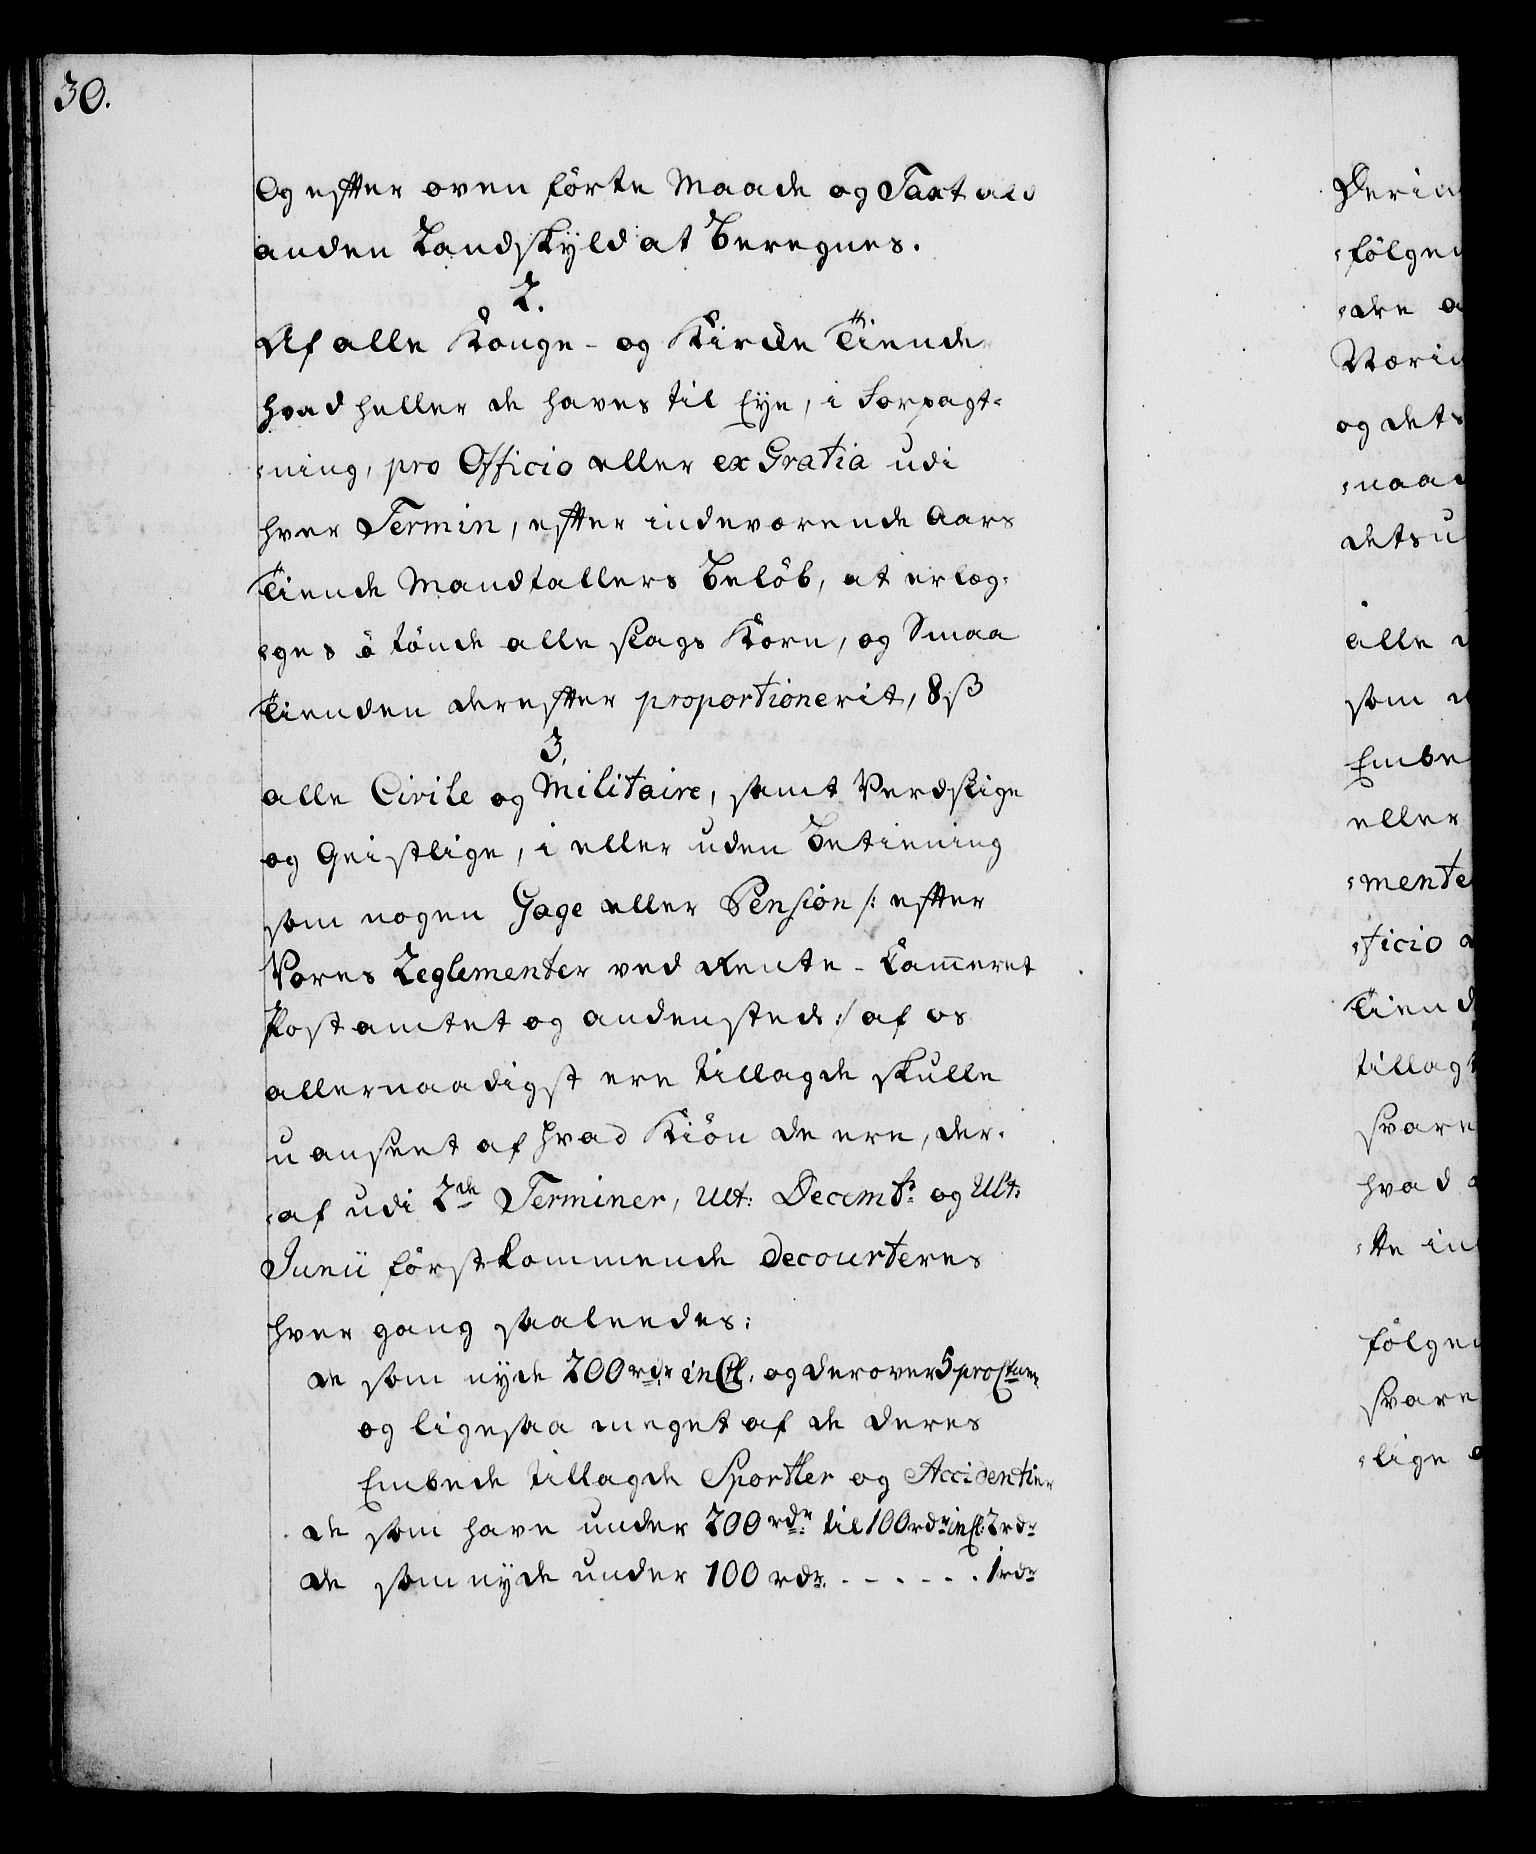 30.
Og efter oven förte Maade og Taxt all
anden Landskyld at beregnes.
2.
Af alle Konge- og Kircke Tiende
hvad heller de haves til Eye, i Forpagt-
-ning, pro Officio eller ex Gratia udi
hver Termin, efter indeværende Aars
Tiende Mandtallers Belöb, at erlæg-
-ges à tönde alle slags Korn, og Smaa
Tienden derefter proportionerit, 8 ß
3.
alle Civile og Militaire, samt Verdslige
og Geistlige, i eller uden Betiening
som nogen Gage eller Pension /: efter
Vores Reglementer ved Rente-Cammeret
Postamtet og andensteds :/ af os
allernaadigst ere tillagde skulle
uanseet af hvad Kiön de ere, der-
-af udi 2de Terminer, Ult: Decembr: og Ult:
Junii först kommende decourteres
hver gang saaleedes:
de som nyde 200 rdr incl. og derover 5 pro Ctum
og ligesaa meget af de deres
Embede tillagde Sportler og Accidentier
de som have under 200 rdr til 100 rdr incl: 2 rdr
de som nyde under 100 rdr. - . - . - . 1 rdr
Derim
-fölgen
-dre a
Værin
og dets
-naad
detsu
alle
som
Embe
eller
-mente
-ficio
Tiend
tillag
svare
hvad
-te in
fölgen
svare
-lige